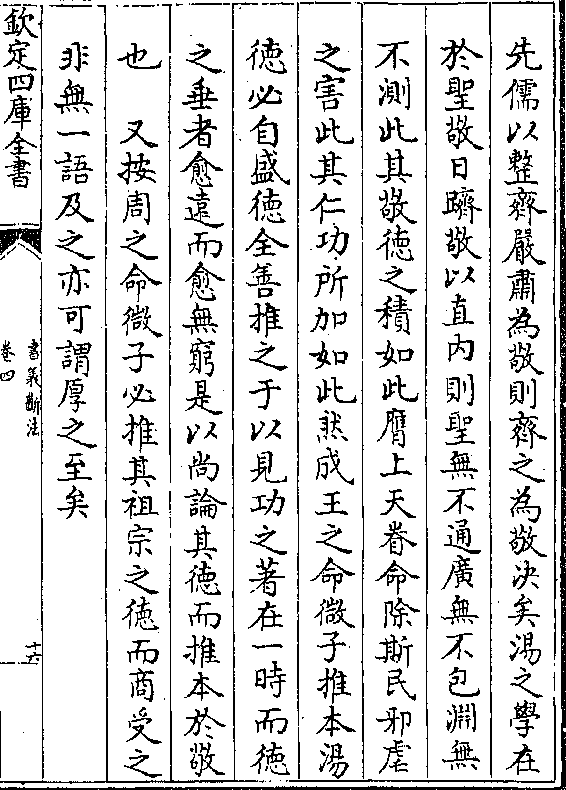 先儒以整齊嚴肅為敬則齊之為敬決矣湯之學在
於聖敬日躋敬以直内則聖無不通廣無不包淵無
不測此其敬德之積如此膺上天眷命除斯民邪虐
之害此其仁功所加如此然成王之命微子推本湯
德必自盛德全善推之于以見功之著在一時而德
之垂者愈遠而愈無窮是以尚論其德而推本於敬
也　又按周之命微子必推其祖宗之德而商受之
非無一語及之亦可謂厚之至矣
欽定四庫全書
書義斷法
卷四
十六